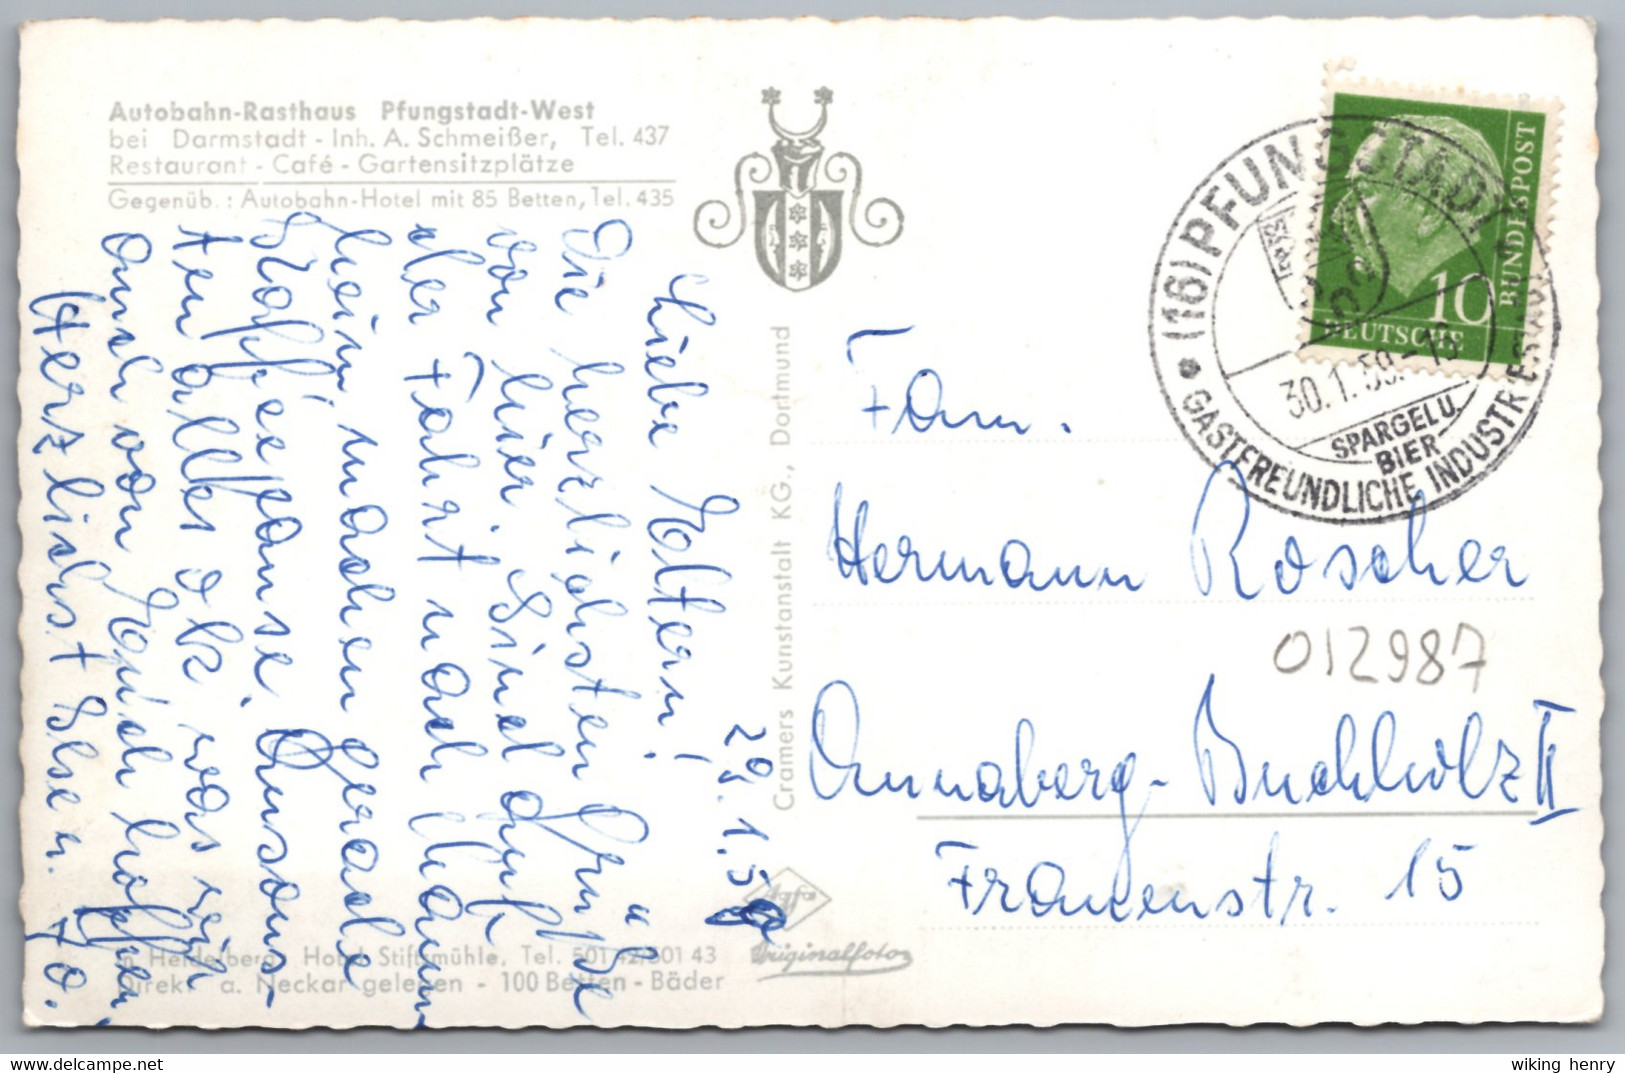 Autobahn-Rasthaus Pfungstadt-West
bei Darmstadt - Inh. A. Schmeißer, Tel. 437
Restaurant - Café - Gartensitzplätze
Gegenüb.: Autobahn-Hotel mit 85 Betten, Tel. 435
29. 1. 59
Liebe Eltern!
Die herzlichsten Grüße
von hier. Sind auf
der Fahrt nach Mann
heim, machen gerade
Kaffeepause. Ansons-
ten alles ok was wir
auch von Euch hoffen.
Herzlichst Else u.
in Heidelberg: Hotel Stiftsmühle, Tel. 501 42/501 43
Direkt a. Neckar gelegen - 100 Betten - Bäder
Cramers Kunstanstalt KG., Dortmund
Agfa
Originalfoto
(16) PFUNGSTADT
30.1.59.-13
SPARGEL U.
BIER
GASTFREUNDLICHE INDUSTRIESTADT
10
DEUTSCHE
BUNDESPOST
Fam.
Hermann Roscher
012987
Annaberg-Buchholz II
Frauenstr. 15
wiking henry